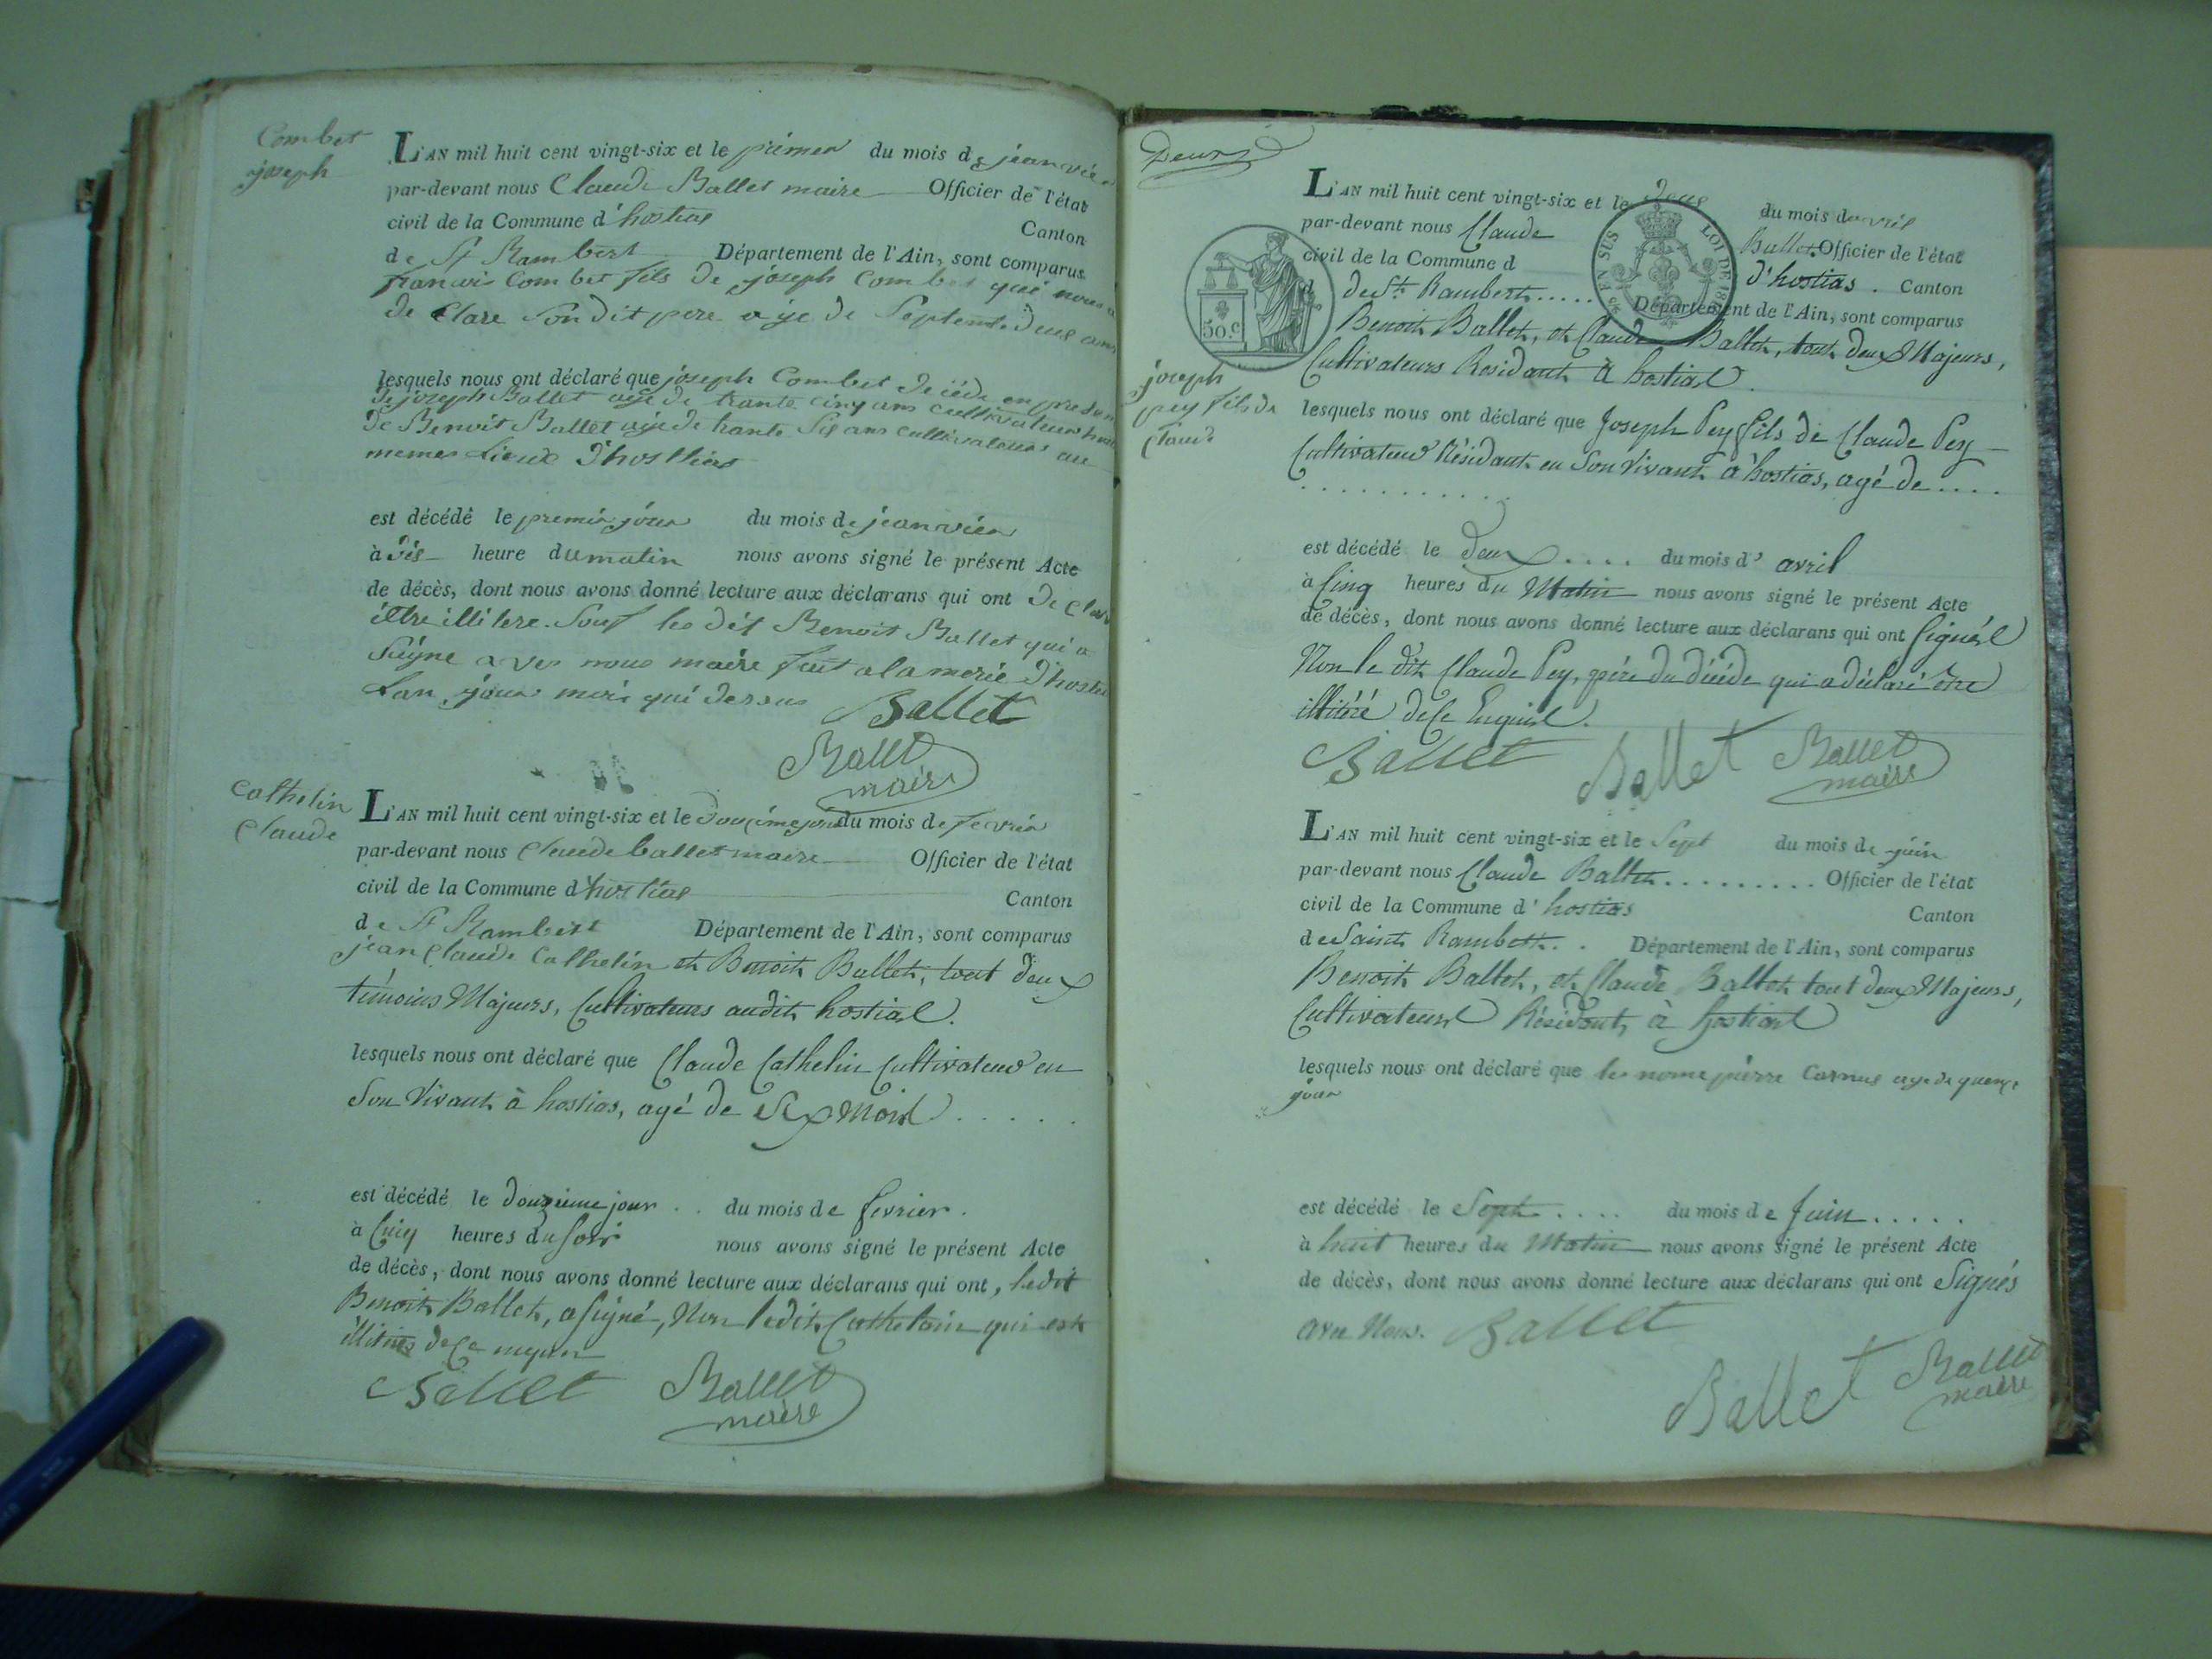 Combet
joseph
L'AN mil huit cent vingt-six et le prémier du mois de jeanvier
par-devant nous Claude Ballet maire Officier de l'état
civil de la Commune d'hostias
Canton
de St Rambert Département de l'Ain, sont comparus
francois Combet fils de joseph Combet qui nous a
de Clare Son dit pere aije de Septente deus ans
lesquels nous ont déclaré que joseph Combet decéde en presen
de joseph Ballet aije de trante cinq ans cultivateur
de Benoit Ballet aije de trante Sis ans cultivateur au
memes Lieux d'hostias
est décédé le premir jour du mois de jeanvier
à Sis heure du matin nous avons signé le présent Acte
de décès, dont nous avons donné lecture aux déclarans qui ont de Clare
être illitere. Souf le dit Benoit Ballet qui a
Saigne avec nous maire fait a la merie d'hostia
Lan jour mois qui dessus Ballet
Ballet
maire
Cathelin
Claude
L'AN mil huit cent vingt-six et le Douzime jour du mois de fevrier
par-devant nous Claude ballet maire Officier de l'état
civil de la Commune d'hostias
Canton
de St Rambert Département de l'Ain, sont comparus
jean Claude Cathelin et Benoit Ballet, tout deux
témoins Majeurs, Cultivateurs audit hostias.
lesquels nous ont déclaré que Claude Cathelin Cultivateur en
Son Vivant à hostias, agé de Six Mois . . . . .
est décédé le douzieme jour . . du mois de fevrier .
à Cinq heures du Soir nous avons signé le présent Acte
de décès, dont nous avons donné lecture aux déclarans qui ont, ledit
Benoit Ballet, a signé, Non ledit Cathelain qui est
illitéré de Ce
Ballet Ballet
maire
Deux
L'AN mil huit cent vingt-six et le Deus du mois d'avril
par-devant nous Claude Ballet. Officier de l'état
civil de la Commune d d'hostias . Canton
d de St. Rambert . . . . . Département de l'Ain, sont comparus
EN SUS LOI DE
50.c
Benoit Ballet, et Claude Ballet, tout deux Majeurs,
Cultivateurs Residant à hostias.
joseph
pey fils de
Claude
lesquels nous ont déclaré que Joseph Pey fils de Claude Pey
Cultivateur Résidant en Son Vivant à hostias, agé de . . . .
. . . . . . . . . . . .
est décédé le deux . . . . du mois d' avril
à Cinq heures du Matin nous avons signé le présent Acte
de décès, dont nous avons donné lecture aux déclarans qui ont Signés
Non le dit Claude Pey, père du décédé qui a déclaré être
illitéré de Ce Enquis.
Ballet Ballet Ballet
maire
L'AN mil huit cent vingt-six et le Sept du mois de juin
par-devant nous Claude Ballet . . . . . . . . . Officier de l'état
civil de la Commune d' hostias
Canton
de Saint Rambert . . Département de l'Ain, sont comparus
Benoit Ballet, et Claude Ballet tout deux Majeurs,
Cultivateurs Résidant, à hostias
lesquels nous ont déclaré que le nome pierre Cornus age de quenze
jour
est décédé le Sept . . . . du mois de Juin . . . . .
à huit heures du Matin nous avons signé le présent Acte
de décès, dont nous avons donné lecture aux déclarans qui ont Signés
avec Nous. Ballet
Ballet Ballet
maire